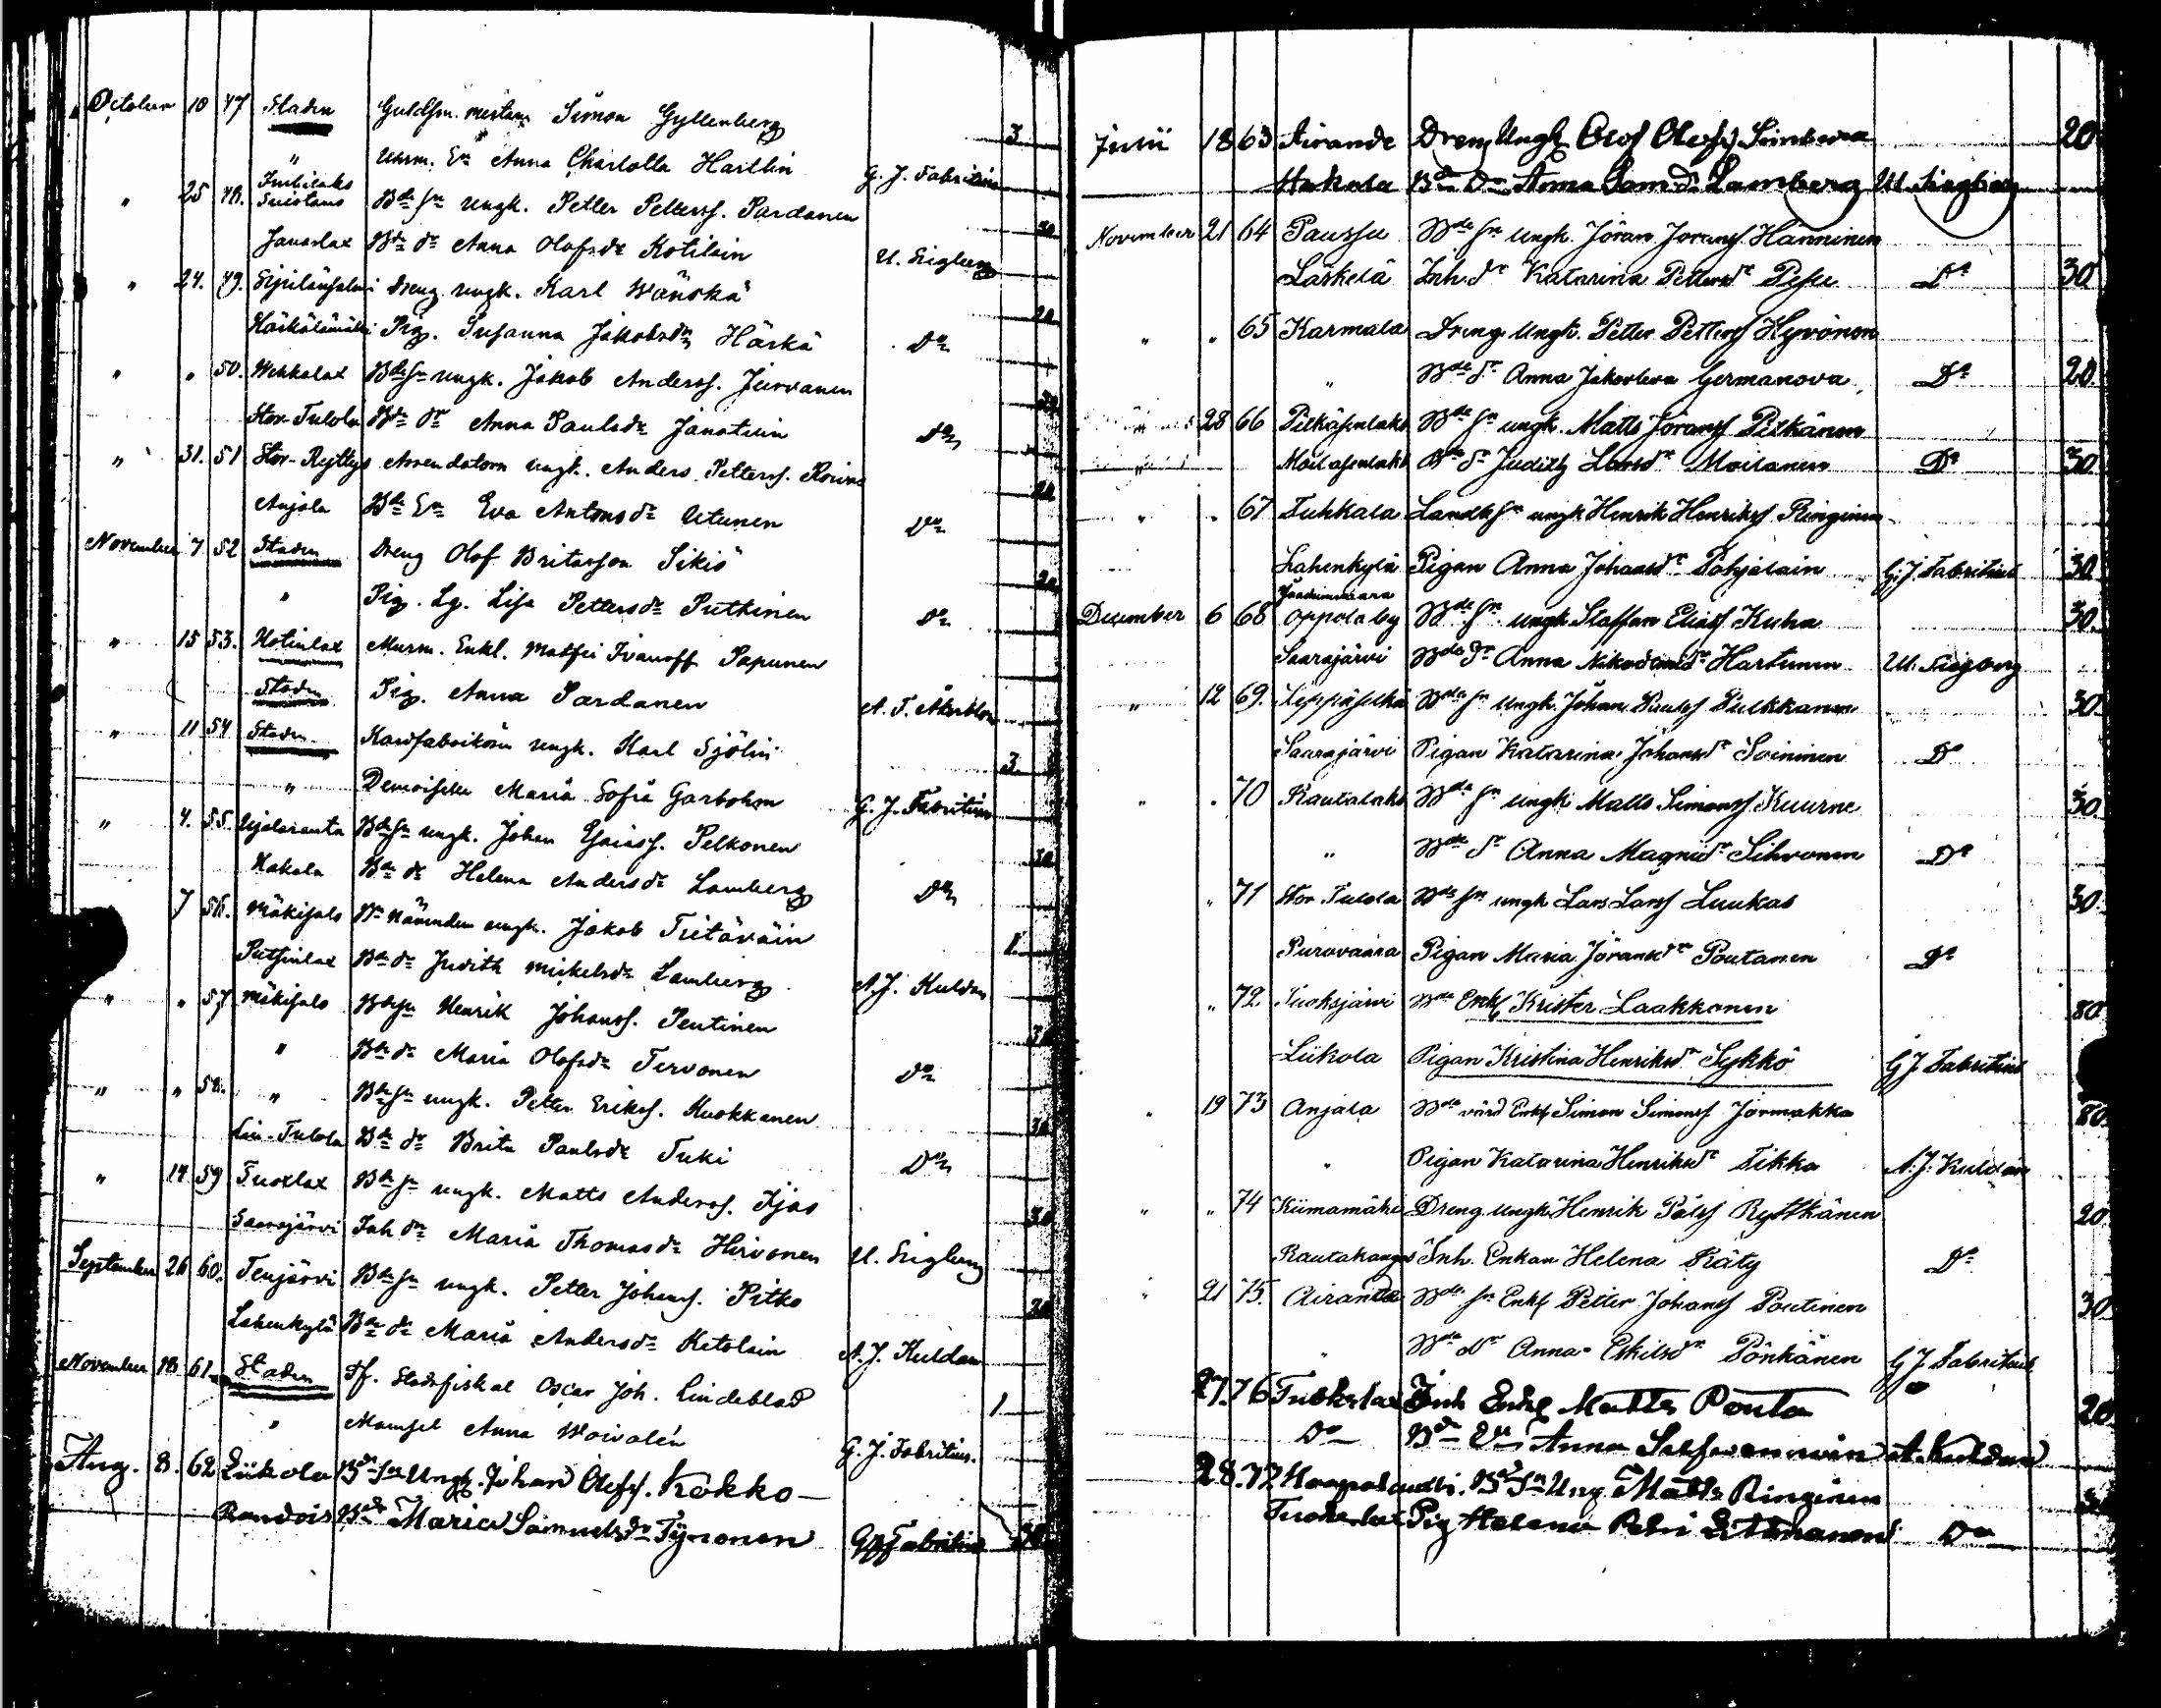 October 10 47 Staden Guldsm. mestaren Simon Gyllenberg 3
" Uhrm. Ea Anna Charlotta Hartlin G. J. Fabritius
" 25 48. Bde sn ungk. Petter Petterss. Pardanen 30
Janaslax Bde dr Anna Olofsdr Kotilain U. Sirgberg
" 24. 49. dreng ungk. Karl Wänskä 20
Pig. Susanna Jakobsdr Härkä Do
" " 50. Wehkalax Bde sn ungk. Jakob Anderss. Jurvanen 30
Stor-Tulola Bde dr Anna Paulsdr Janatuin Do
" 31. 51 Stor-Ryttys Arrendatorn ungk. Anders Petterss. Koivu 20
Anjala Bde Ea Eva Antonsdr Utunen Do
November 7 52 Staden Dreng Olof Britasson Sikiö 20
" Pig. Lg. Lisa Pettersdr Putkinen Do
" 15 53. Kotinlax Murm. Enkl. Matfei Ivanoff Papunen
Staden Pig. Anna Pardanen
" 11 54 Staden ungk. Karl Sjölin 3
" Demoiselle Maria Sofia Garbohm G. J. Fabritius
" 4. 55. Bde sn ungk. Johan Esaiass. Pelkonen 30
Hakala Bde dr Helena Andersdr Lamberg Do
7 56. Mäkisalo ungk. Jakob Tietäväin 1
Putsinlax Bde dr Judith Mickelsdr Lamberg A. J. Kuldan
" " 57 Mäkisalo Bdesn Henrik Johanss. Pentinen 30
" Bde dr Maria Olofsdr Tervonen Do
" " 58. " Bde sn ungk. Petter Erikss. Kuokkanen 30
Tulola Bde dr Brita Paulsdr Tuki Do
" 14 59 Tuoxlax Bde sn ungk. Matts Anderss. Ijäs 30
Saarajärvi Inh dr Maria Thomasdr Hirvonen U. Sirgberg
September 26 60. Tenjärvi Bde sn ungk. Petter Johanss. Pitko 30
Lahenkylä Bde dr Maria Andersdr Ketolain A. J. Kuldan
November 18 61 Staden Tf. Stadsfiskal Oscar Joh. Lindeblad 1
" Mamsel Anna Woivalén G. J. Fabritius.
Aug. 8. 62 Liikola Bde Sn Ungk. Johan Olofss. Kokko
Bde Dr Maria Samuelsdr Tynonen G J Fabritius 30
Junii 18 63 Airanda Dreng Ungk Olof Olofss 20
Hakala Bde Dr Anna Samdr Lamberg U. Sirgberg
November 21 64 Paussu Bde sn ungk. Jöran Joranss. Hänninen
Läskelä Inh. dr Katarina Pettersdr Pesu Do 30
" " 65 Karmala Dreng Ungk. Petter Petterss Hyvönen
" Bde dr Anna Jakovlewa Germanova Do 20
" 28 66 Pitkäsenlaks Bde sn ungk. Matts Jöranss Pitkänen
" Moilasenlaks Bde dr Judith Larsdr Moilanen Do 30
" " 67 Tuhkala Landb sn ungk Henrik Henrikss Ringinen
Lahenkylä Pigan Anna Johansdr Pohjalain G. J. Fabritius 30
December 6 68 Oppola by Bde sn ungk Staffan Eliass Kuha 30.
Saarajärvi Bde dr Anna Nikodemidr Hartunen U. Sirgberg
" 12 69. Leppäselkä Bde sn ungk. Johan Paulss Pulkkanen 30
Saarajärvi Pigan Katarina Johansdr Soininen Do
" " 70 Rautalaks Bde sn ungk Matts Simonss Kuurne 30
" Bde dr Anna Magnidr Sihvonen Do
" 71 Stor Tulola Bde sn ungk Lars Larss Luukas 30
Purovaara Pigan Maria Jöransdr Poutanen Do
" 72. Tuoksjärvi Bde Enkl Krister Laakkonen 80
Liikola Pigan Kristina Henriksdr Sykkö G J Fabritius
" 19 73 Anjala Bde värd Enkl Simon Simonss Jormakka 80
" Pigan Katarina Henriksdr Tikka A. J. Kuldan
" " 74 Kiimamäki Dreng ungk Henrik Pålss Ryttkänen 20
Rautakangas Inh. Enkan Helena Räty Do
" 21 75. Airanda Bde sn Enkl Petter Johanss Poutinen 30
" Bde dr Anna Eskilsdr Pönkänen G J Fabritius
27. 76 Tuokslax Inh Enkl Matts Ponta 20
Do Bde Anna A. Kuldan
28. 77 Bde Sn Ung Matts Ringinen
Pig Helena Do